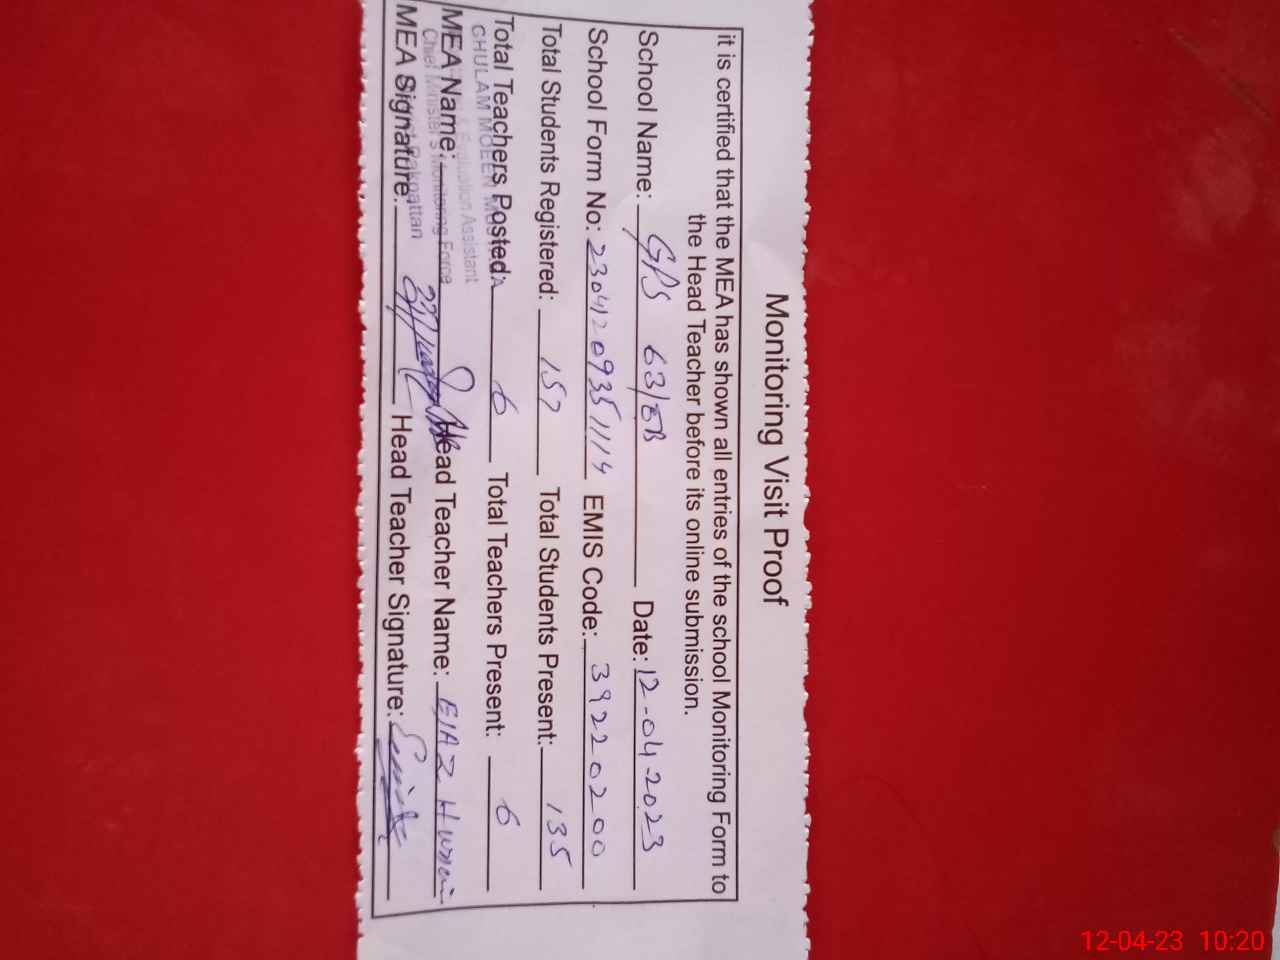 Monitoring Visit Proof
it is certified that the MEA has shown all entries of the school Monitoring Form to
the Head Teacher before its online submission.
School Name: GPS 63/EB Date: 12-04-2023
School Form No: 230412093511114 EMIS Code: 39220200
Total Students Registered: 157 Total Students Present: 135
Total Teachers Posted: 6 Total Teachers Present: 6
GHULAM MOEEN
Evaluation Assistant
MEA Name: Head Teacher Name: EJAZ Hussain
Chief Minister's Monitoring Force
Pakpattan
MEA Signature: Head Teacher Signature:
12-04-23 10:20